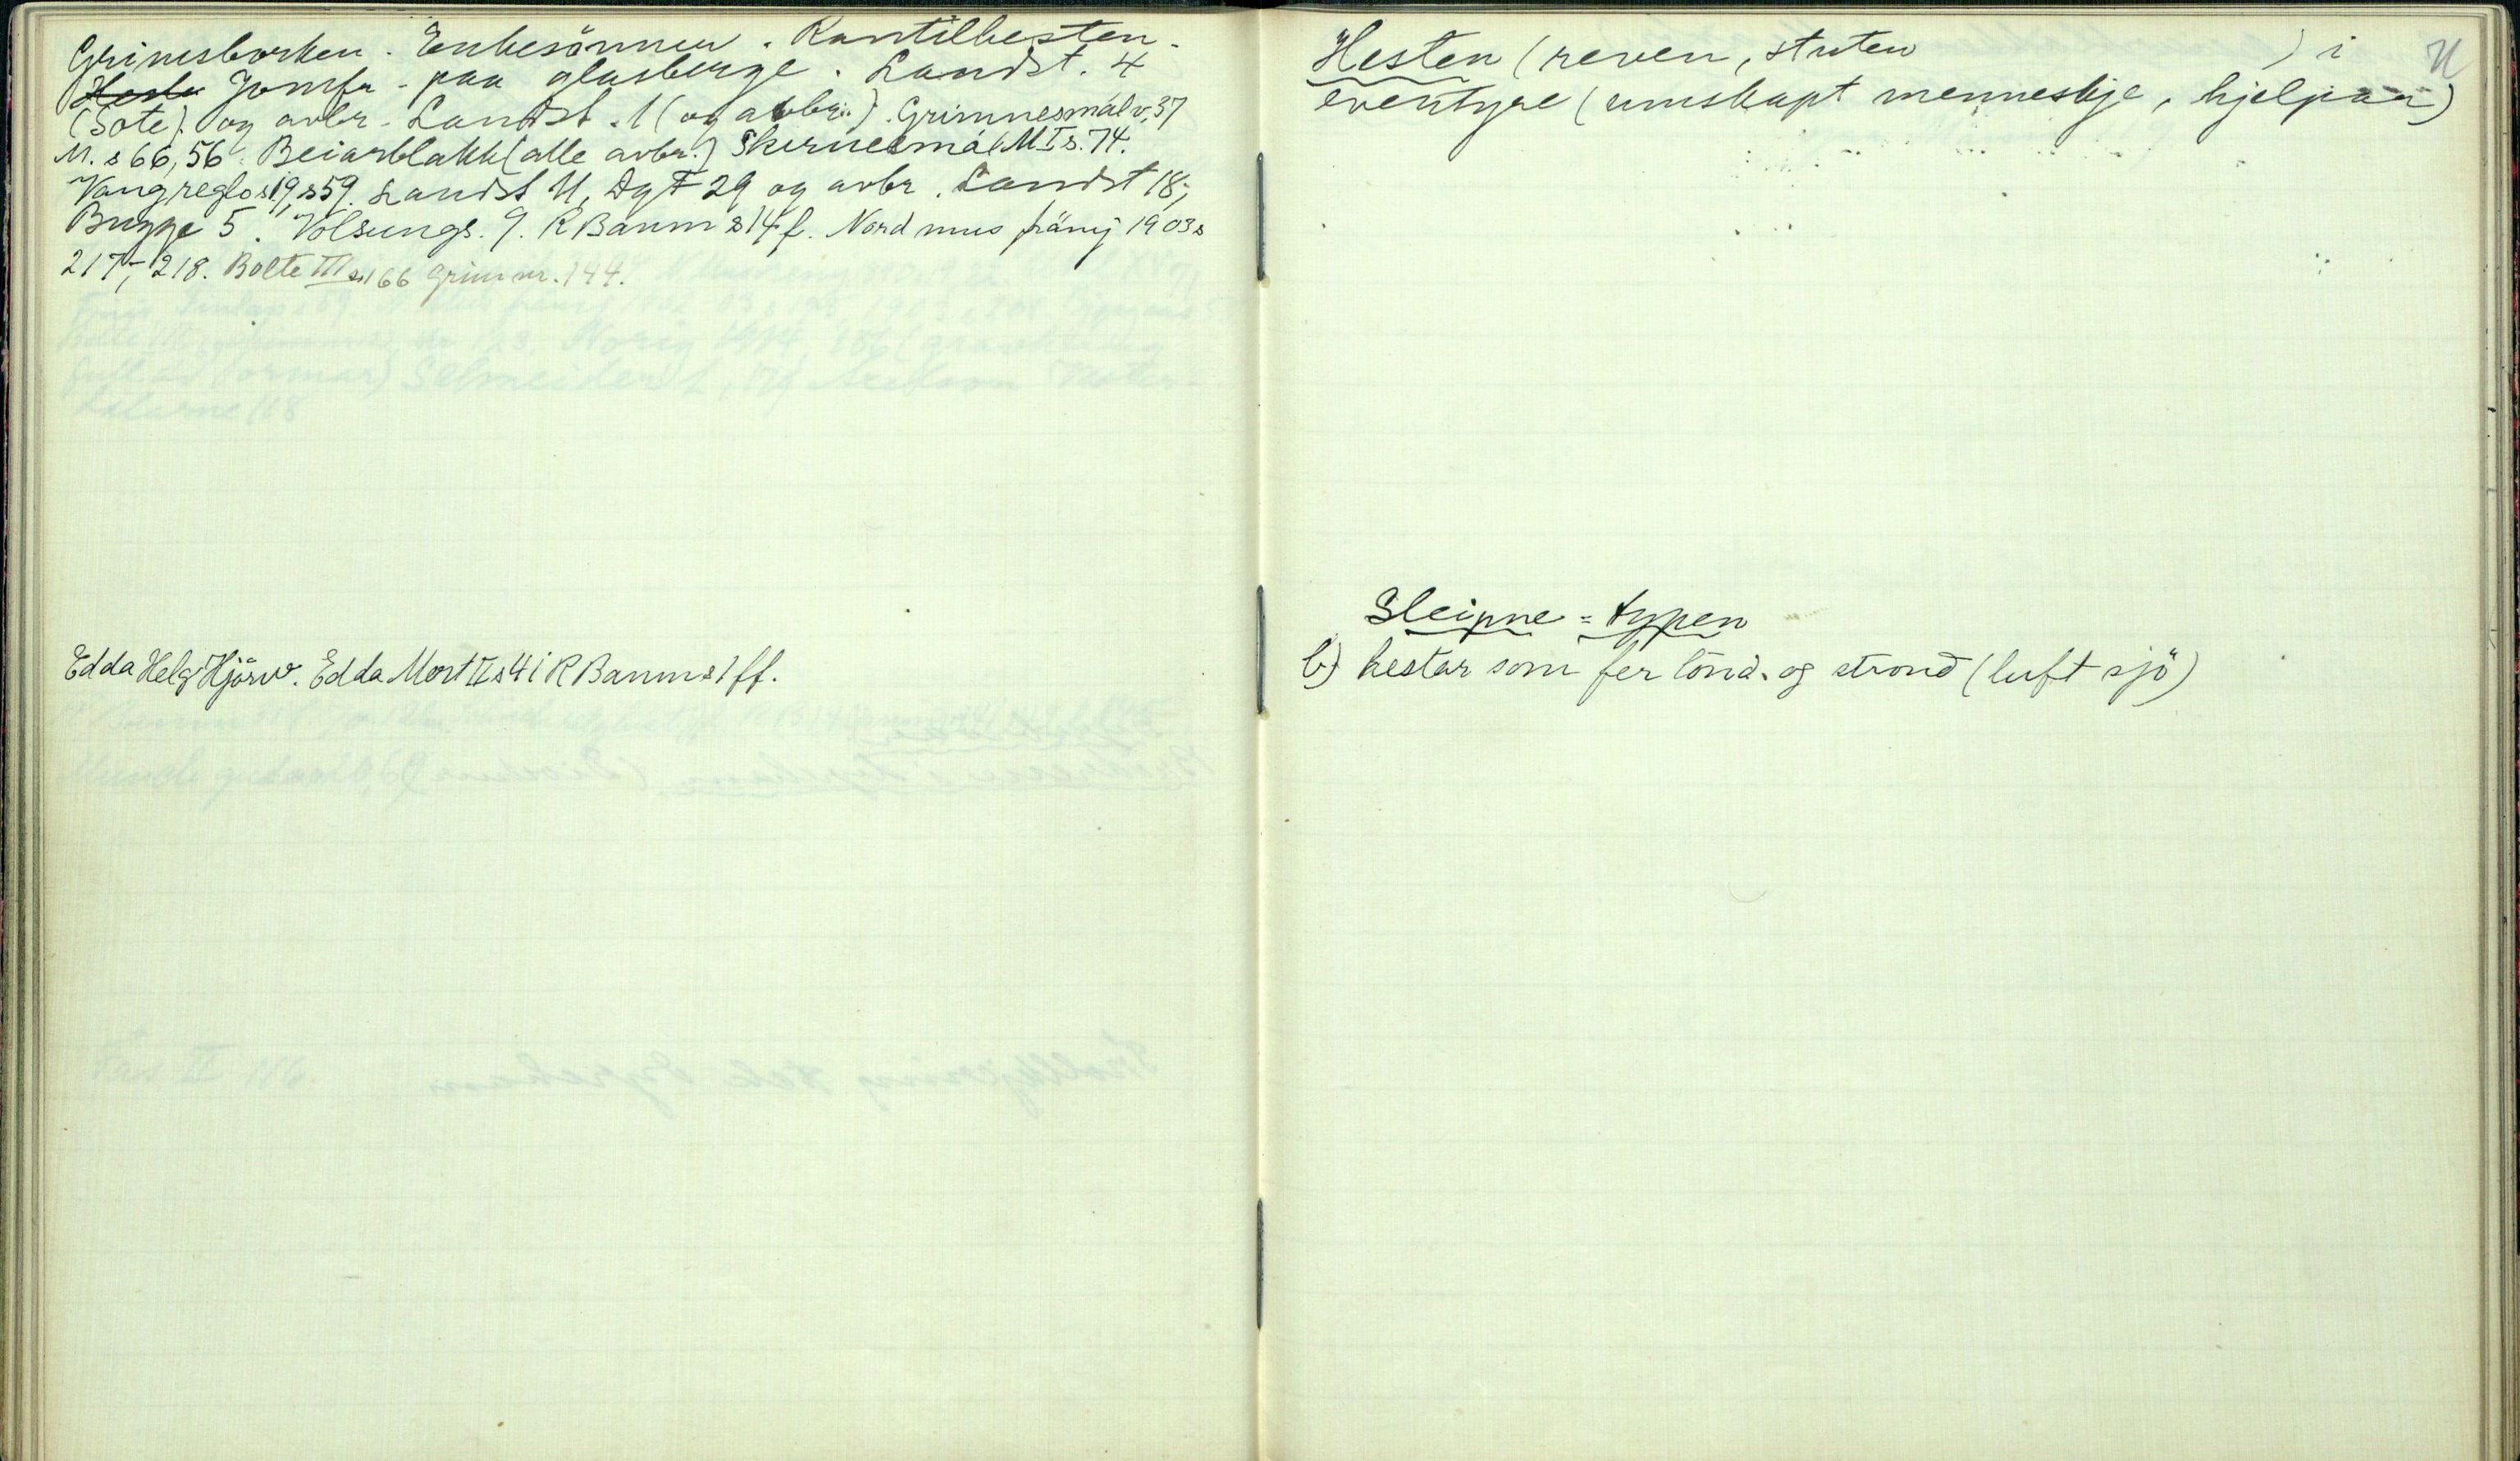 Grimsborken. Enkesönnen. Rantilhesten.
Heste Jomfr. paa glasberge. Landst. 4
(Sote). og avbr. Landst. 1 (og avbr.). Grimnesmál v. 37
M. s 66, 56. Beiarblakk (alle avbr.) Skirnesmál M I s. 74.
Vang reglo s 19, s 59. Landst 11, DgF 29 og avbr. Landst 18;
Bugge 5. Volsungs. 9. R Baum s 14 f. Nord mus 1903 s
217, 218. Bolte III s 166 Grim nr. 144.
Edda Helg Hjörv. Edda Mort II s 41 R Baum s 1 ff.
Hesten (reven, stuten ) i
eventyre (umskapt menneskje, hjelpar)
Sleipne-typen
b) hestar som fer lönd og strond (luft sjö)